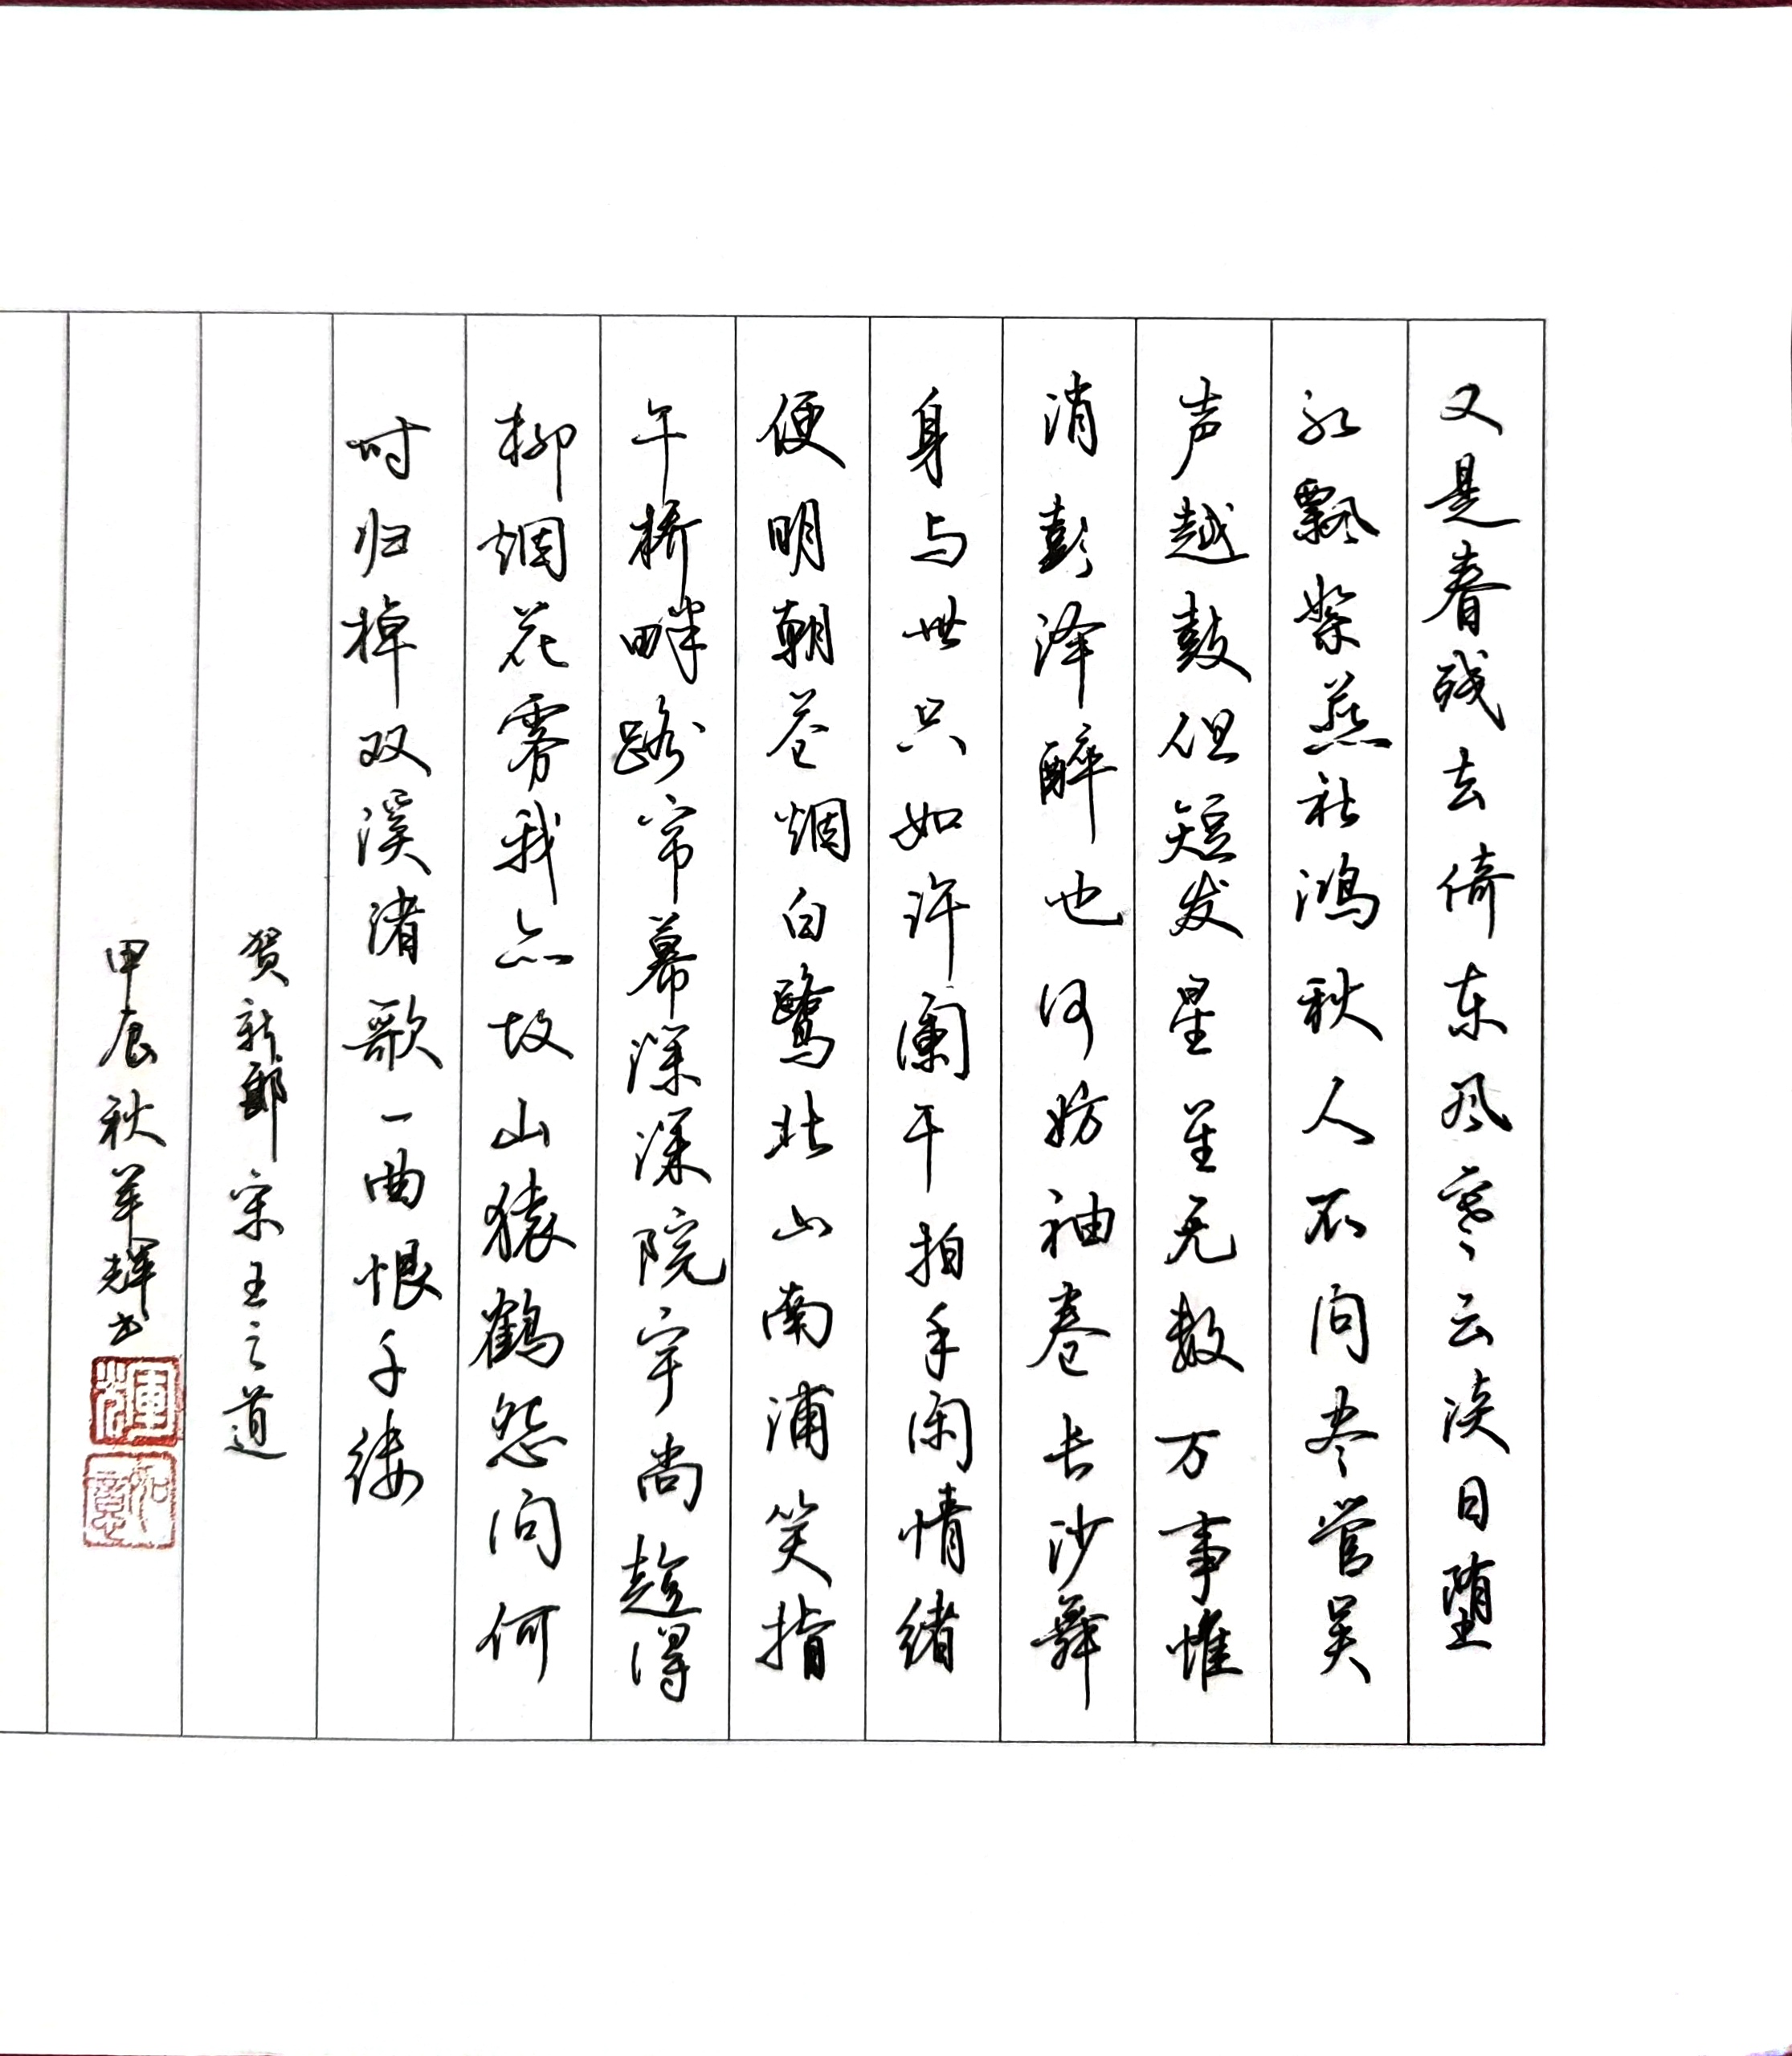 又是春残去倚东风寒云淡日堕
红飘絮燕社鸿秋人不问尽管吴
声越鼓但短发星星无数万事惟
消彭泽醉也何妨袖卷长沙舞
身与世只如许阑干拍手闲情绪
便明朝苍烟白鹭北山南浦笑指
午桥桥畔路帘幕深深院宇尚趁得
柳烟花雾我亦故山猿鹤怨问何
时归棹双溪渚歌一曲恨千缕
贺新郎宋王之道
甲辰秋军辉书
輝
如意